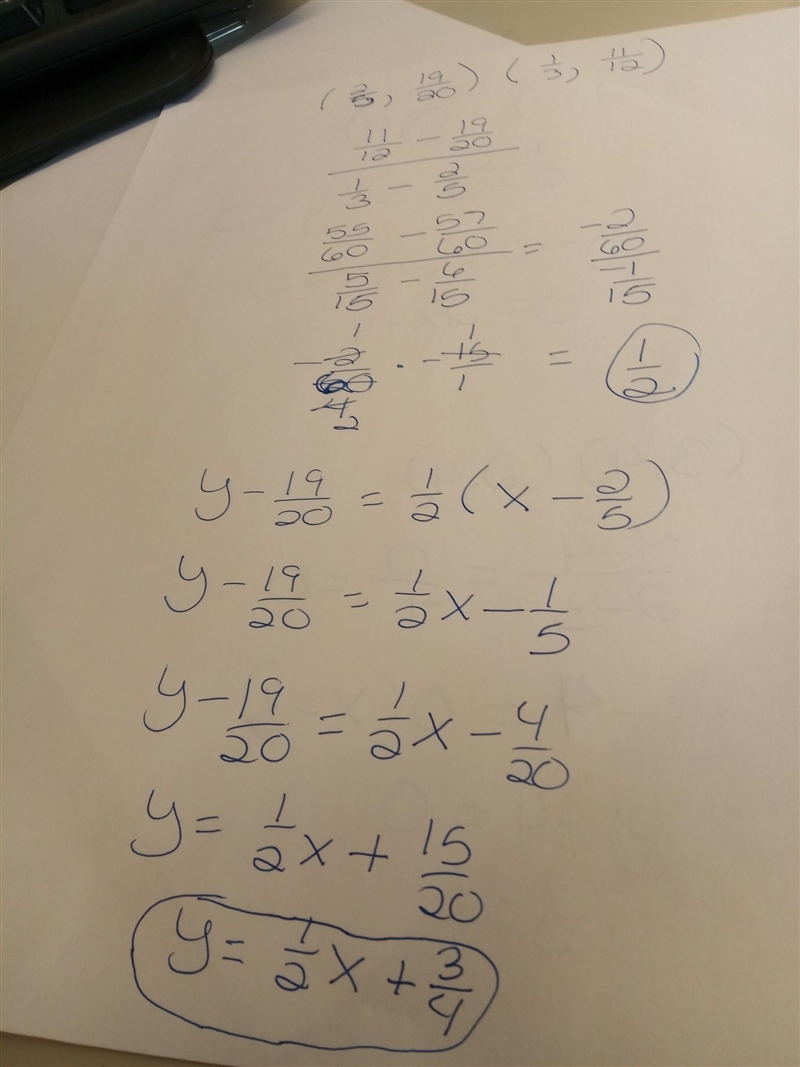 (2/5, 19/20) (1/3, 11/12)
11/12 - 19/20
1/3 - 2/5
55/60 - 57/60 = -2/60
5/15 - 6/15 -1/15
-2/60 · -15/1 = 1/2
1 1
4
2
y - 19/20 = 1/2(x - 2/5)
y - 19/20 = 1/2x - 1/5
y - 19/20 = 1/2x - 4/20
y = 1/2x + 15/20
y = 1/2x + 3/4